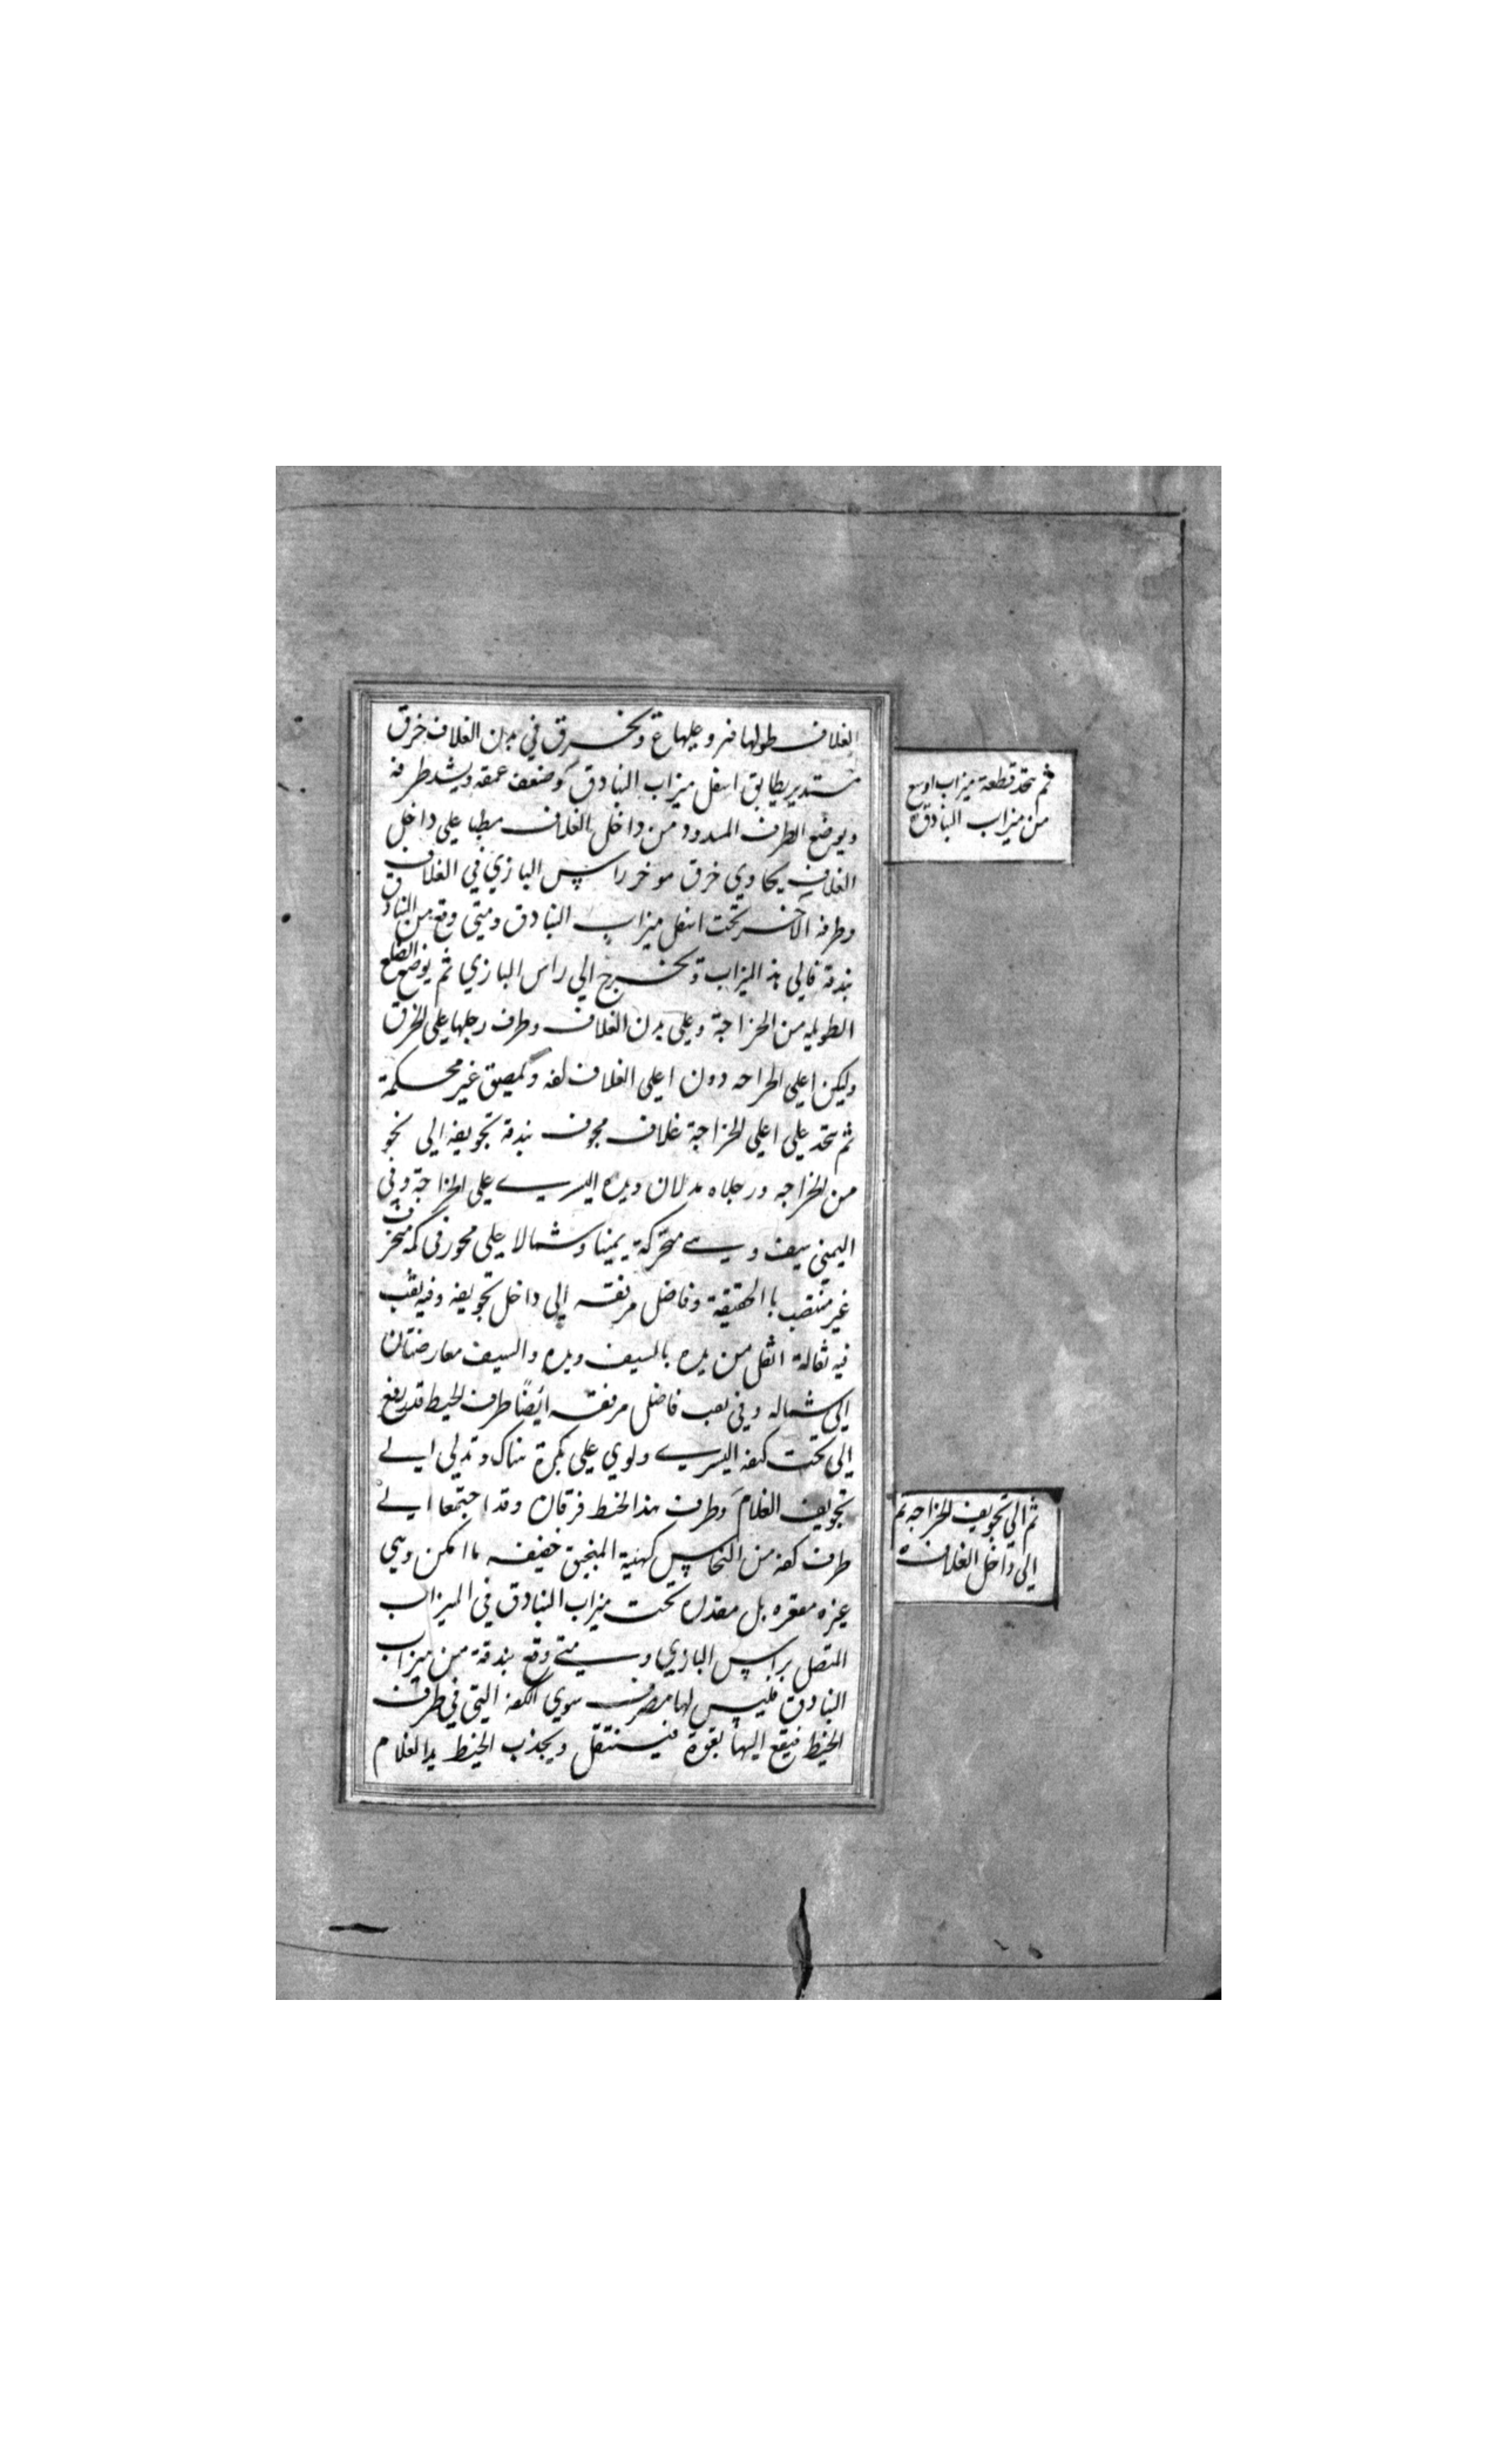 الغلاف طولها فتر وعليها ع ويخرق في بدن الغلاف خرق
مستدير يطابق اسفل ميزاب البنادق وضعف عمقه ويشد طرفه
ويوضع الطرف المسدود من داخل الغلاف مطبا علي داخل
الغلاف يحاوي خرق موخر راس البازي في الغلاف
وطرفه الآخر تحت اسفل ميزاب البنادق ومتي وقع من البنادق
بندقة فالي هذ الميزاب وتخرج الي راس البازي ثم يوضع الضلع
الطويله من الخراجة وعلي بدن الغلاف وطرف رجلها علي الخرق
وليكن اعلي الخراجه دون اعلي الغلاف لفه وتلصق غير محكمة
ثم يتخذ علي اعلي الخراجة غلاف مجوف بندقة تجويفه الي نحو
من الخراجه ورجلاه مدلان ويده اليسرے علي الخراجة وفي
اليمني سيف وسے متحركة يمينا وشمالا علي محور في كمه منحرف
غير منتصب باالحقيقة وفاضل مرفقه الي داخل تجويفه وفيه ثقب
فيه ثقالة اثقل من يده بالسيف ويده والسيف معارضتان
الي شماله وفي ثقب فاضل مرفقه ايضًا طرف الخيط قد رفع
الي تحت كتفه اليسرے ولوي علي بكرة هناك وتدلي الے
تجويف الغلام وطرف هذا الخيط فرقان وقد اجتمعا الے
طرف كفه من النحاس كهيئة المنجنيق خفيفه ماامكن وهي
غيره مقعره بل معدله تحت ميزاب البنادق في الميزاب
المتصل براس البازي ومتے وقع بندقة من ميزاب
البنادق فليس لها مصرف سوي الكفه التي في طرف
الخيط فيقع اليها بقوة فيستثقل ويجذب الخيط يد الغلام
ثم يتخذ قطعة ميزاب اوسع
من ميزاب البنادق
ثم الي تجويف الخراجه ثم
الي داخل الغلاف